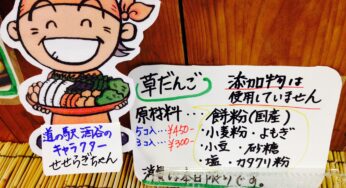 道の駅 酒谷の
キャラクター
せせらぎちゃん
草だんご
添加物は
使用していません
原材料…
5コ入…¥450-
3コ入…¥300-
・餅粉(国産)
・小麦粉・よもぎ
・小豆・砂糖
・塩・カタクリ粉
本日限りです。